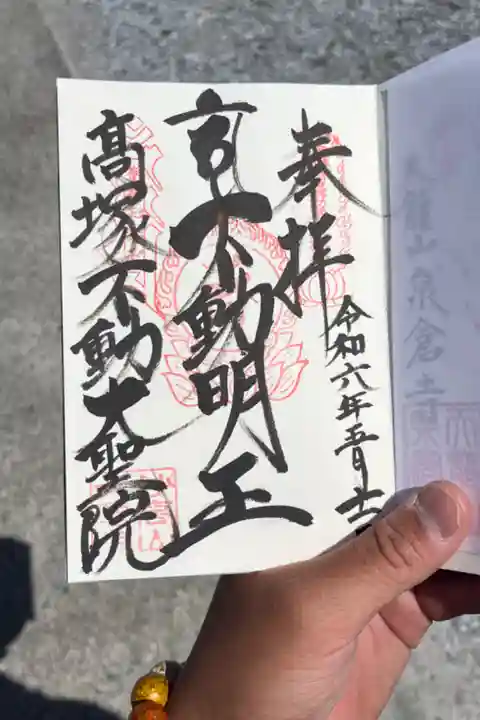 奉拝
令和六年五月
不動明王
高塚不動大聖院
泉倉寺